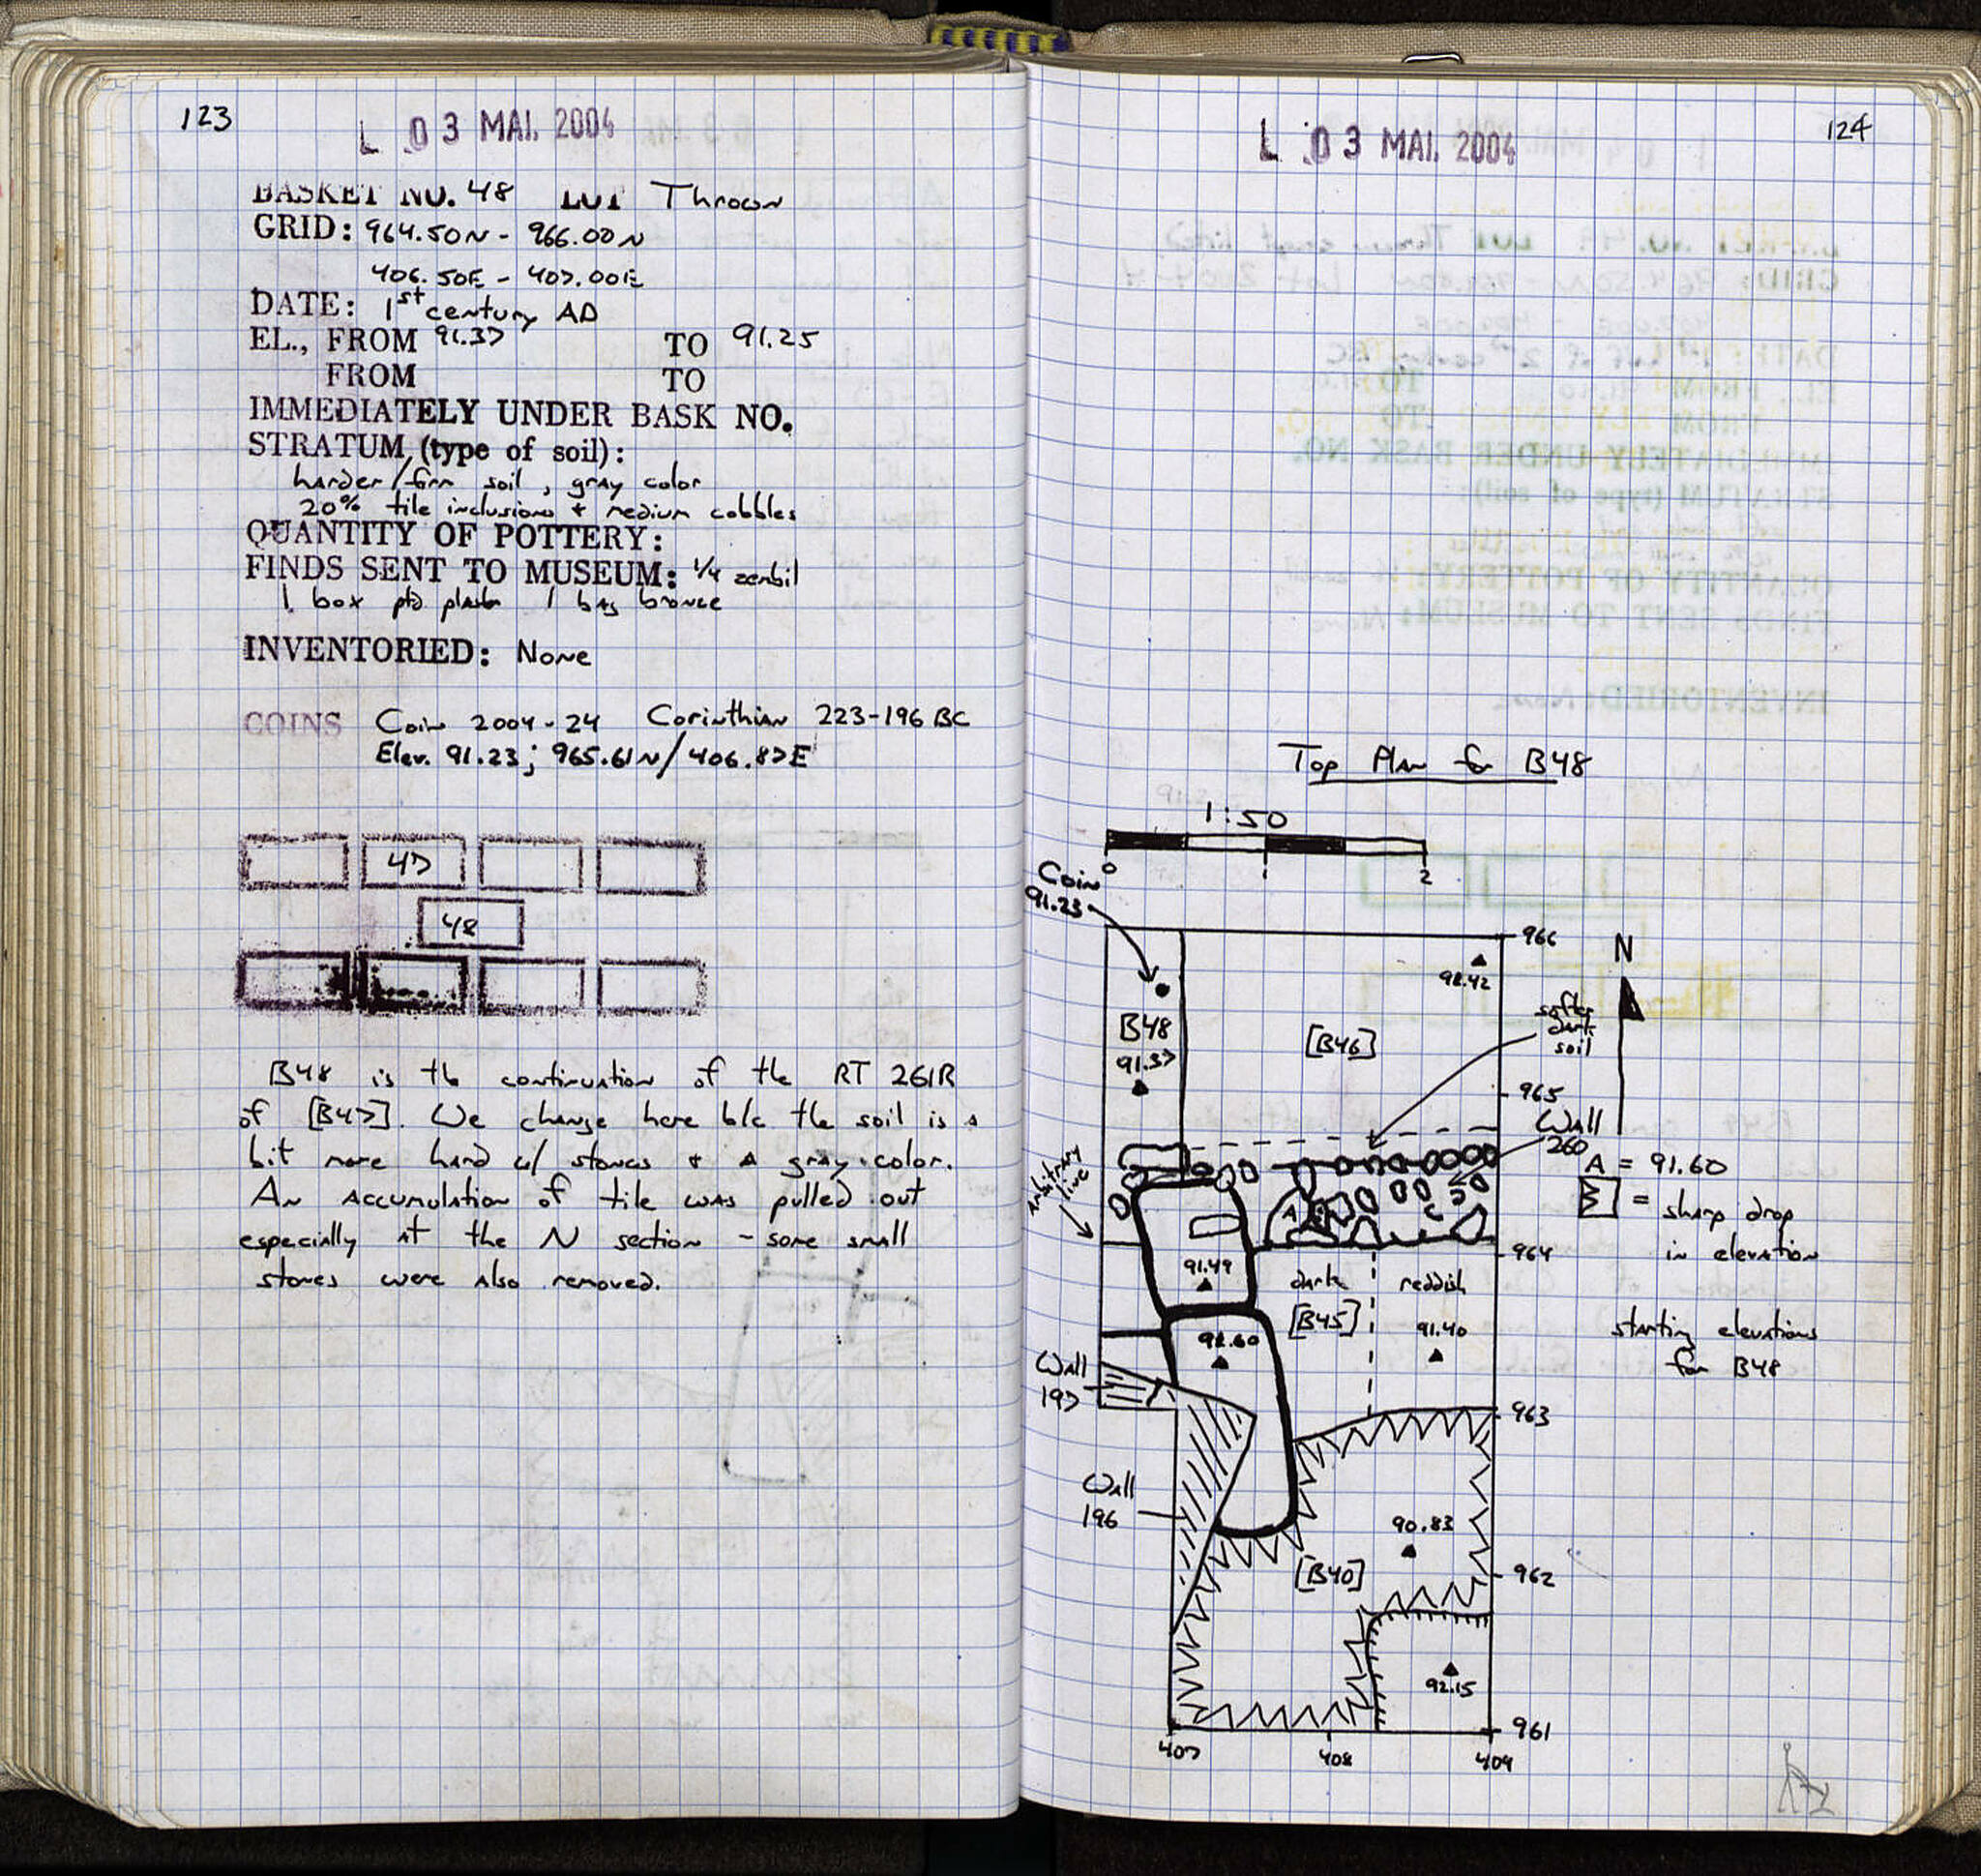 123
L 03 MAI. 2004
BASKET NO. 48 LOT Thrown
GRID: 964.50N - 966.00N
406.50E - 407.00E
DATE: 1st century AD
EL., FROM 91.37 TO 91.25
FROM TO
IMMEDIATELY UNDER BASK NO.
STRATUM (type of soil):
harder/firm soil, gray color
20% tile inclusions + medium cobbles
QUANTITY OF POTTERY:
FINDS SENT TO MUSEUM: 1/4 zembil
1 box ptd plaster 1 bag bronze
INVENTORIED: None
COINS Coin 2004-24 Corinthian 223-196 BC
Elev. 91.23; 965.61N/406.87E
47
48
B48 is the continuation of the RT 261R
of [B47]. We change here b/c the soil is a
bit more hard w/ stones + a gray color.
An accumulation of tile was pulled out
especially at the N section - some small
stones were also removed.
L 03 MAI. 2004
124
Top Plan for B48
1:50
0 1 2
Coin
91.23
966
N
92.42
softer
dark
soil
B48
91.37
[B46]
965
Wall
260
A = 91.60
= sharp drop
in elevation
Arbitrary
line
A
964
91.49
dark
reddish
[B45]
91.40
starting elevations
for B48
Wall
197
963
Wall
196
90.83
[B40]
962
92.15
961
407 408 409